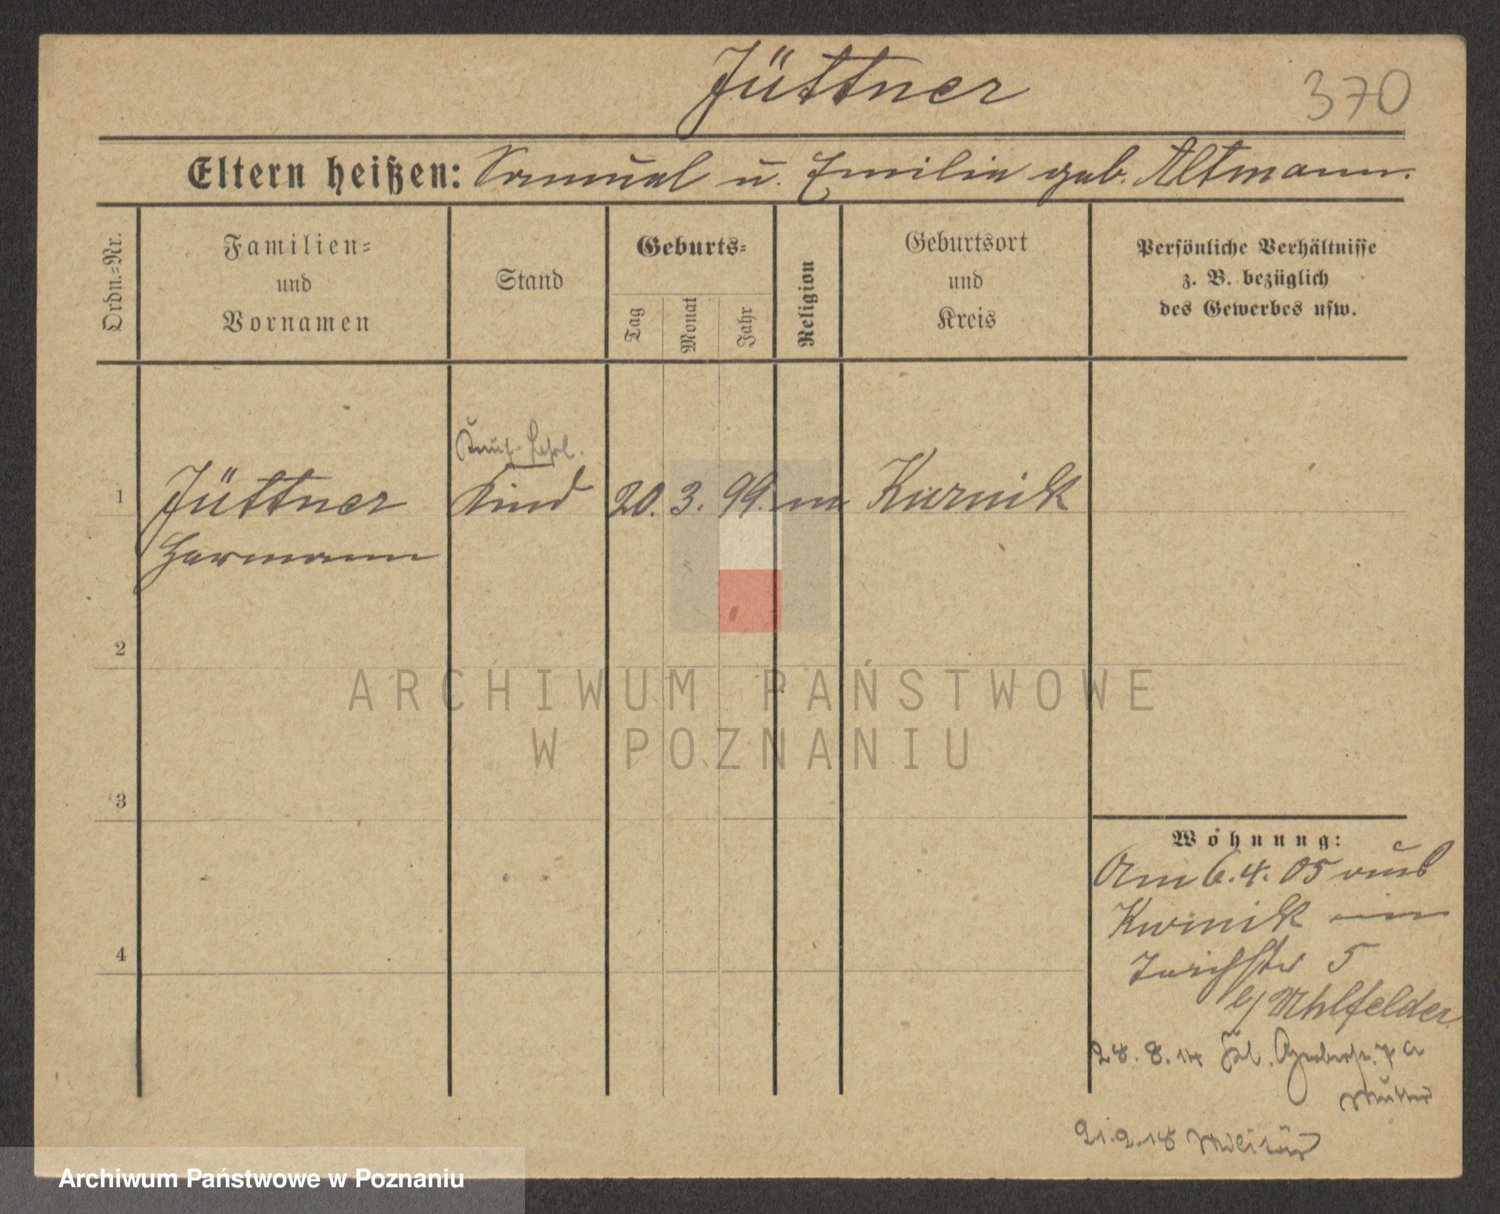 Jüttner
370
Eltern heißen: Samuel u. Emilie geb. Altmann.
Ordn.=Nr.
Familien=
und
Vornamen
Stand
Geburts=
Tag
Monat
Jahr
Religion
Geburtsort
und
Kreis
Persönliche Verhältnisse
z. B. bezüglich
des Gewerbes usw.
Kauf. Lehrl.
1 Jüttner Kind 20. 3. 99. m Kurnik
Hermann
2
3
4
Wohnung:
Am 6.4.05 aus
Kurnik in
5
b/ Uhlfelder
28. 8. 14
Mutter
21.2.18 Militär
ARCHIWUM PAŃSTWOWE
W POZNANIU
Archiwum Państwowe w Poznaniu